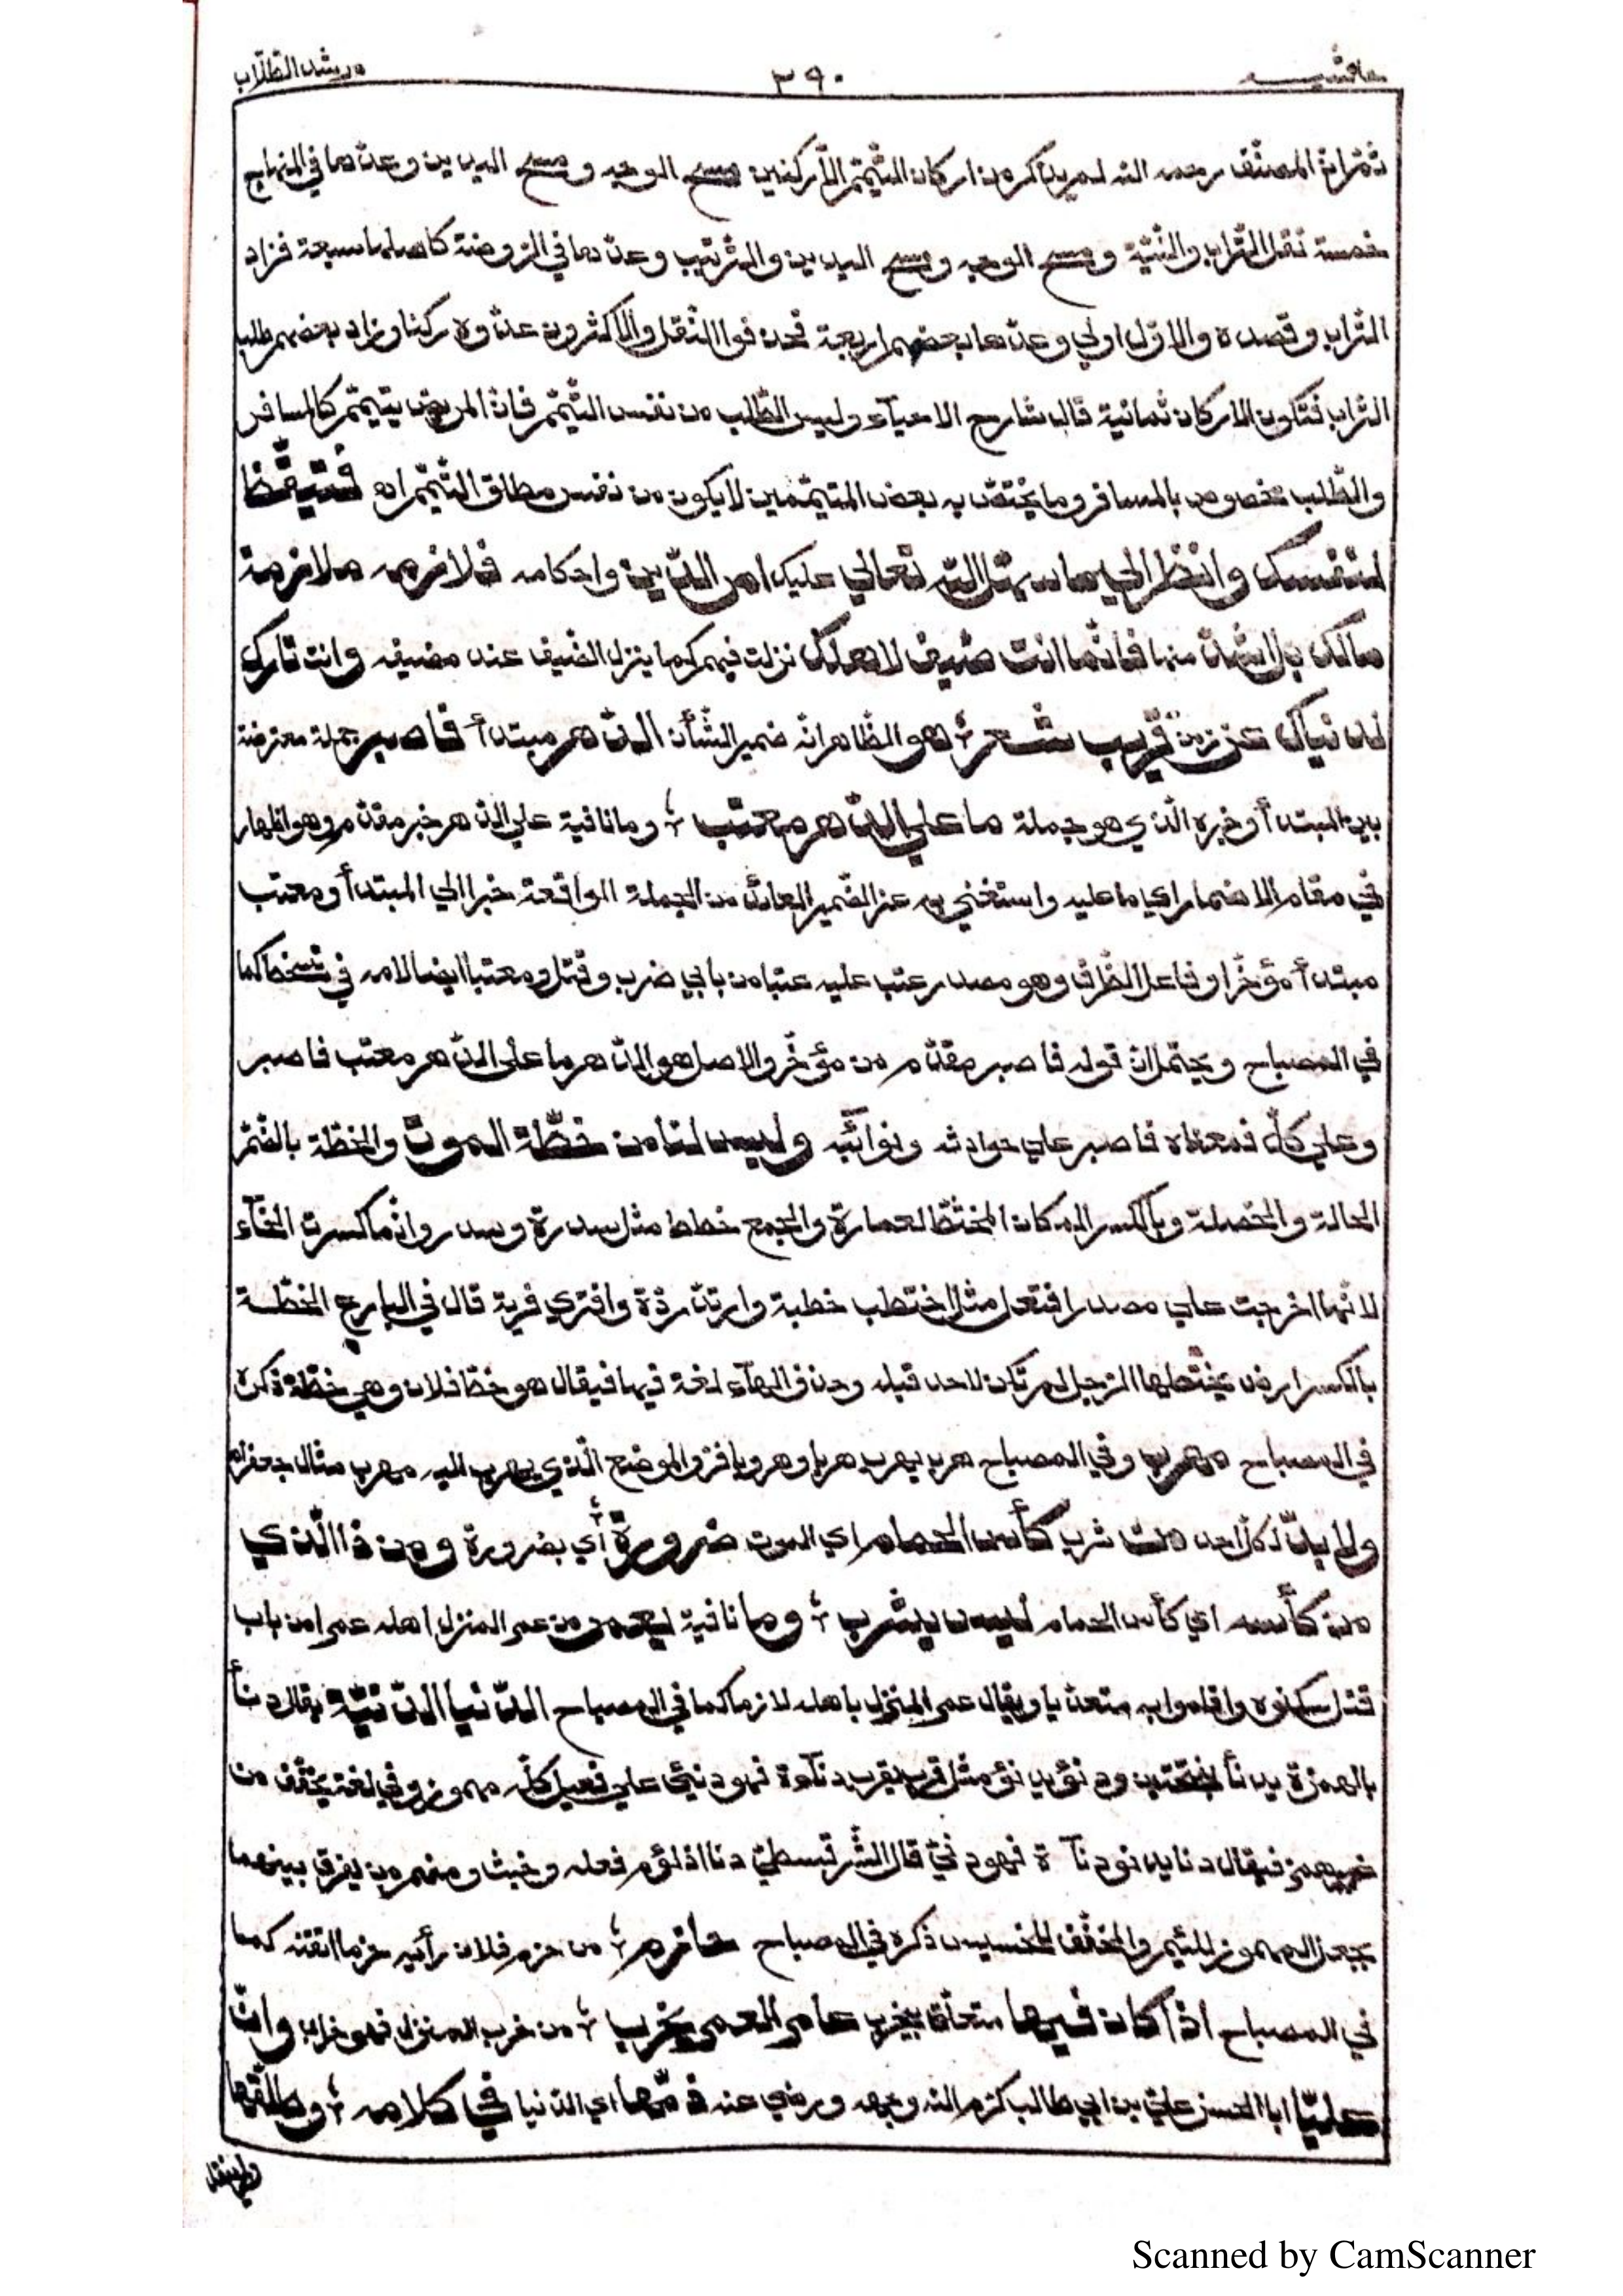 حاشية ٣٩٠ مرشد الطّلّاب
ثمّ انّ المصنّف رحمه الله لم يذكر من اركان التّيمّم الّا ركنين مسح الوجه ومسح اليدين وعدّها في المنهاج
خمسة نقل التّراب والنّيّة ومسح الوجه ومسح اليدين والتّرتيب وعدّها في الرّوضة كاصلها سبعة فزاد
التّراب وقصده والاوّل اولي وعدّها بعضهم اربعة فحذفوا النّقل والاكثرون عدّوه ركنا وزاد بعضهم طلب
التّراب فتكون الاركان ثمانية قال شارح الاحيآء وليس الطّلب من نفس التّيمّم فانّ المريض يتيمّم كالمسافر
والطّلب مخصوص بالمسافر وما يختصّ به بعض المتيمّمين لا يكون من نفس مطلق التّيمّم اه فتيقّظ
لنفسك وانظر الي ما سهّل الله تعالي عليك امر الدّين واحكامه فلازمه ملازمة
مالك بل اشدّ منها فانّما انت ضيف لاهلك نزلت فيهم كما ينزل الضّيف عند مضيفه وانت تارك
لدنياك عن قريب شعر ؛ هو الظّاهر انّه ضمير الشّأن الدّهر مبتدأ فاصبر جملة معترضة
بين المبتدأ وخبره الّذي هو جملة ما علي الدّهر معتب ؛ وما نافية علي الدّهر خبر مقدّم وهو اظهار
في مقام الاضمار اي ما عليه واستغني به عن الضّمير العائد من الجملة الواقعة خبرا الي المبتدأ ومعتب
مبتدأ مؤخّر او فاعل الظّرف وهو مصدر عتب عليه عتبا من بابي ضرب وقتل ومعتبا ايضا لامه في تسخّط كما
في المصباح ويحتمل انّ قوله فاصبر مقدّم من مؤخّر والاصل هو الدّهر ما علي الدّهر معتب فاصبر
وعلي كلّ فمعناه فاصبر علي حوادثه ونوائبه وليس لنا من خطّة الموت والخطّة بالضّمّ
الحالة والخصلة وبالكسر المكان المختطّ لعمارة والجمع خطط مثل سدرة وسدر وانّما كسرت الخآء
لانّها اخرجت علي مصدر افتعل مثل اختطب خطبة وارتدّ ردّة وافتري فرية قال في البارع الخطّة
بالكسر ارض يختطّها الرّجل لم تكن لاحد قبله وحذف الهآء لغة فيها فيقال هو خطّ فلان وهي خطّة ذكره
في المصباح مهرب وفي المصباح هرب يهرب هربا وهروبا فرّ والموضع الّذي يهرب اليه مهرب مثال جعفر اه
ولا بدّ لكلّ احد من شرب كأس الحمام اي الموت ضرورة ؛ اي بضرورة ومن ذا الّذي
من كأسه اي كأس الحمام ليس يشرب ؛ وما نافية يعمر من عمر المنزل اهله عمرا من باب
قتل سكنوه واقاموا به متعدّيا ويقال عمر المنزل باهله لازما كما في المصباح الدّنيا الدّنيّة يقال دنأ
بالهمزة يدنأ بفتحتين ودنؤ يدنؤ مثل قرب يقرب دنآءة فهو دنيئ علي فعيل كلّه مهموز وفي لغة يخفّف من
غير همز فيقال دنا يدنو دنآءة فهو دنيّ قال السّرقسطيّ دنا اذا لؤم فعله وخبث ومنهم من يفرق بينهما
بجعل المهموز للئيم والمخفّف للخسيس ذكره في المصباح حازم ؛ من حزم فلان رأيه حزما اتقنه كما
في المصباح اذا كان فيها متعلّق بيخرب عامر العمر يخرب ؛ من خرب المنزل فهو خراب وانّ
عليّا ابا الحسن عليّ بن ابي طالب كرّم الله وجهه ورضي عنه ذمّها اي الدّنيا في كلامه ؛ وطلّقها